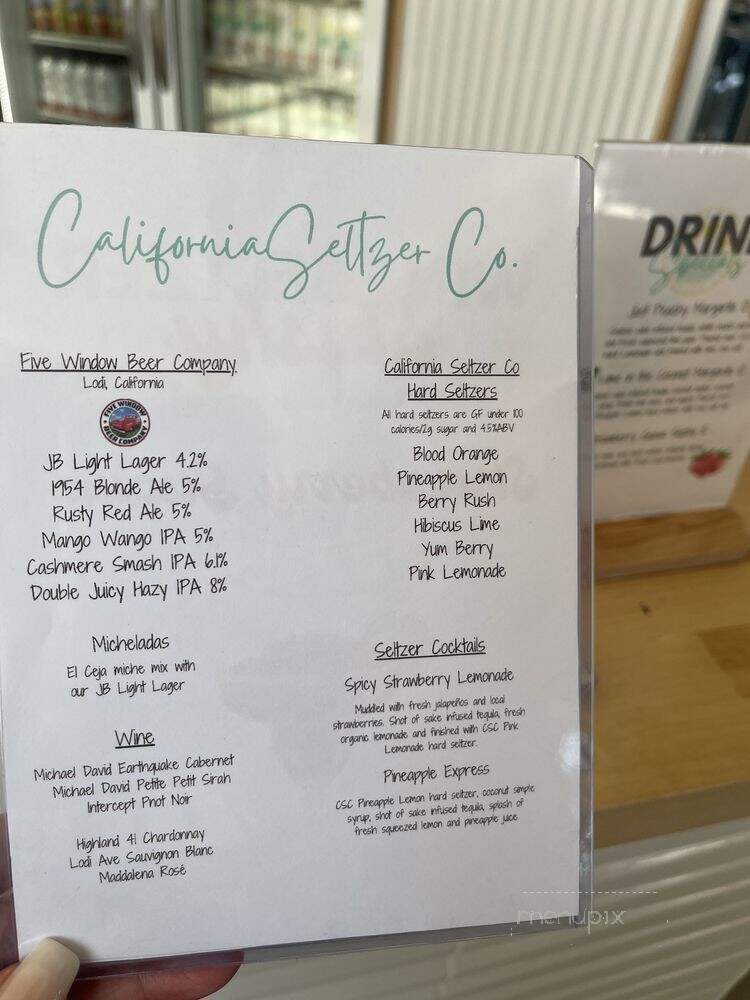 California Seltzer Co.
Five Window Beer Company
Lodi, California
FIVE WINDOW
BEER COMPANY
JB Light Lager 4.2%
1954 Blonde Ale 5%
Rusty Red Ale 5%
Mango Wango IPA 5%
Cashmere Smash IPA 6.1%
Double Juicy Hazy IPA 8%
Micheladas
El Ceja miche mix with
our JB Light Lager
Wine
Michael David Earthquake Cabernet
Michael David Petite Petit Sirah
Intercept Pnot Noir
Highland 41 Chardonnay
Lodi Ave Sauvignon Blanc
Maddalena Rosé
California Seltzer Co
Hard Seltzers
All hard seltzers are GF under 100
calories/2g sugar and 4.5%ABV
Blood Orange
Pineapple Lemon
Berry Rush
Hibiscus Lime
Yum Berry
Pink Lemonade
Seltzer Cocktails
Spicy Strawberry Lemonade
Muddled with fresh jalapeños and local
strawberries. Shot of sake infused tequila, fresh
organic lemonade and finished with CSC Pink
Lemonade hard seltzer.
Pineapple Express
CSC Pineapple Lemon hard seltzer, coconut simple
syrup, shot of sake infused tequila, splash of
fresh squeezed lemon and pineapple juice
DRIN
Just Peachy Margarita
menupix